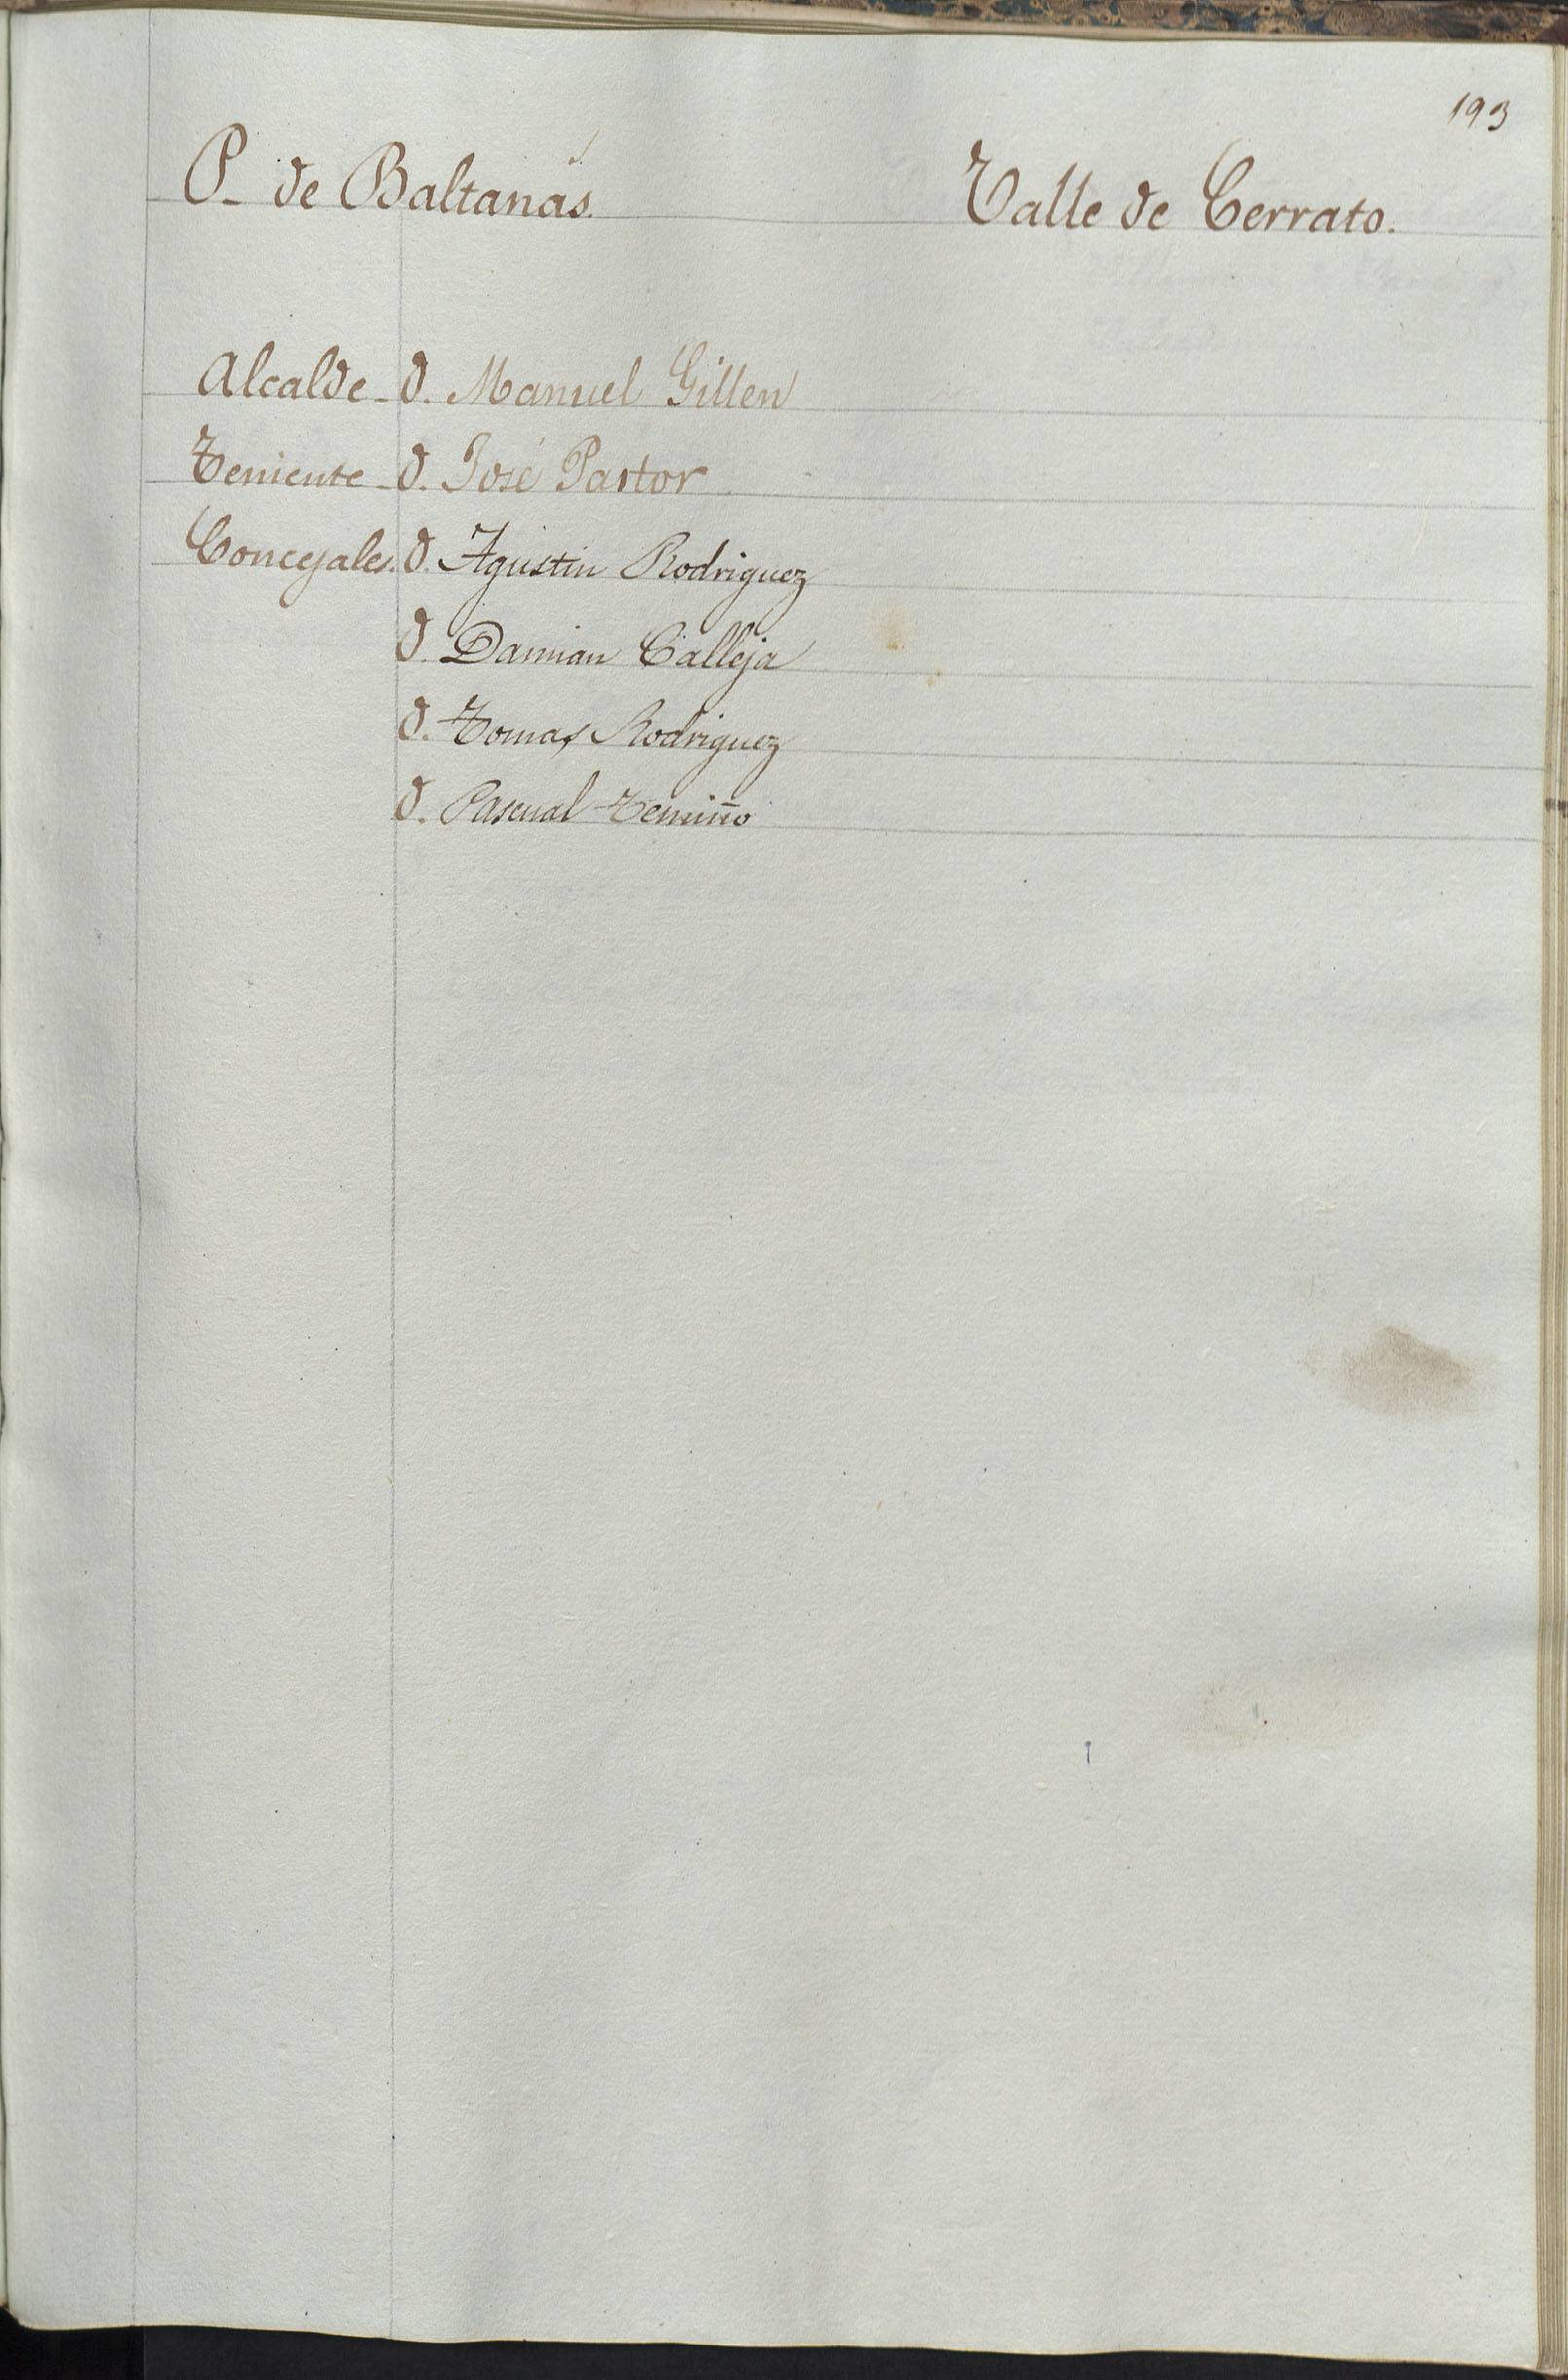 193
P. de Baltanás. Valle de Cerrato.
Alcalde D. Manuel Gillen
Teniente D. José Pastor
Concejales. D. Agustin Rodriguez
D. Damian Calleja
D. Tomas Rodriguez
D. Pascual Temiño